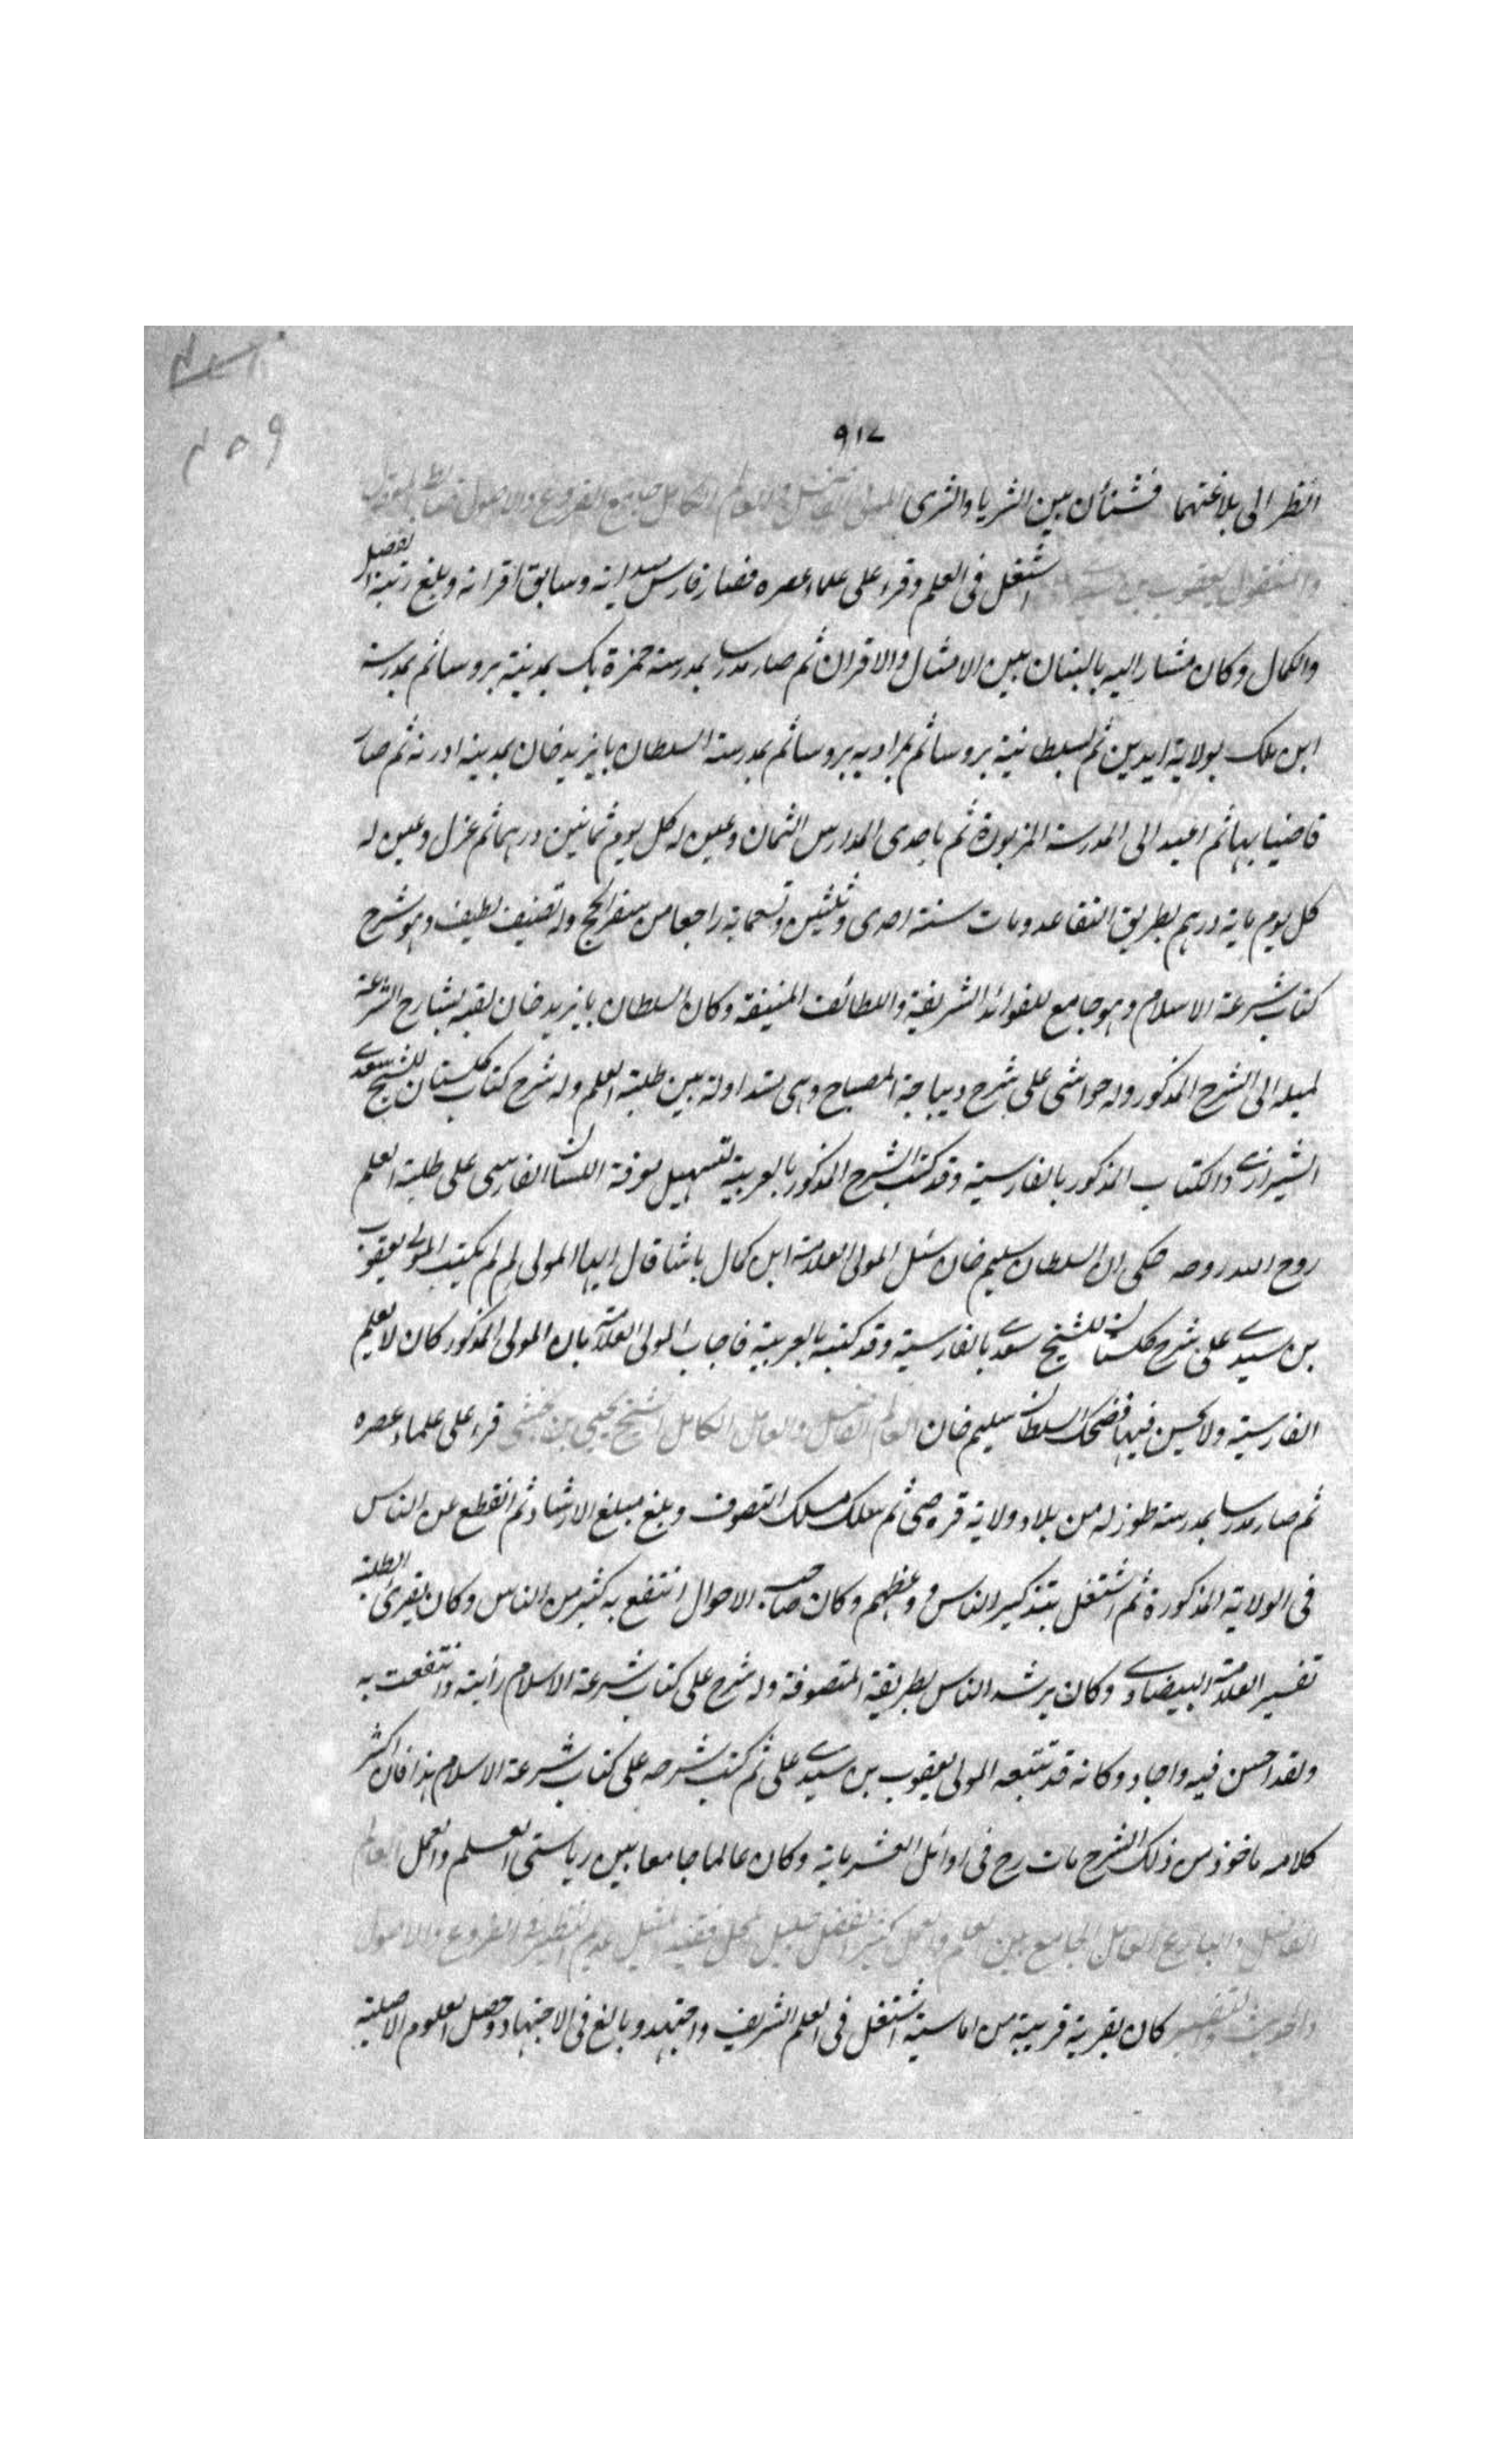 ٩١٢
٤٥٩
انظر الى بلاغتهما فشتان بين الثريا والثرى المولى الفاضل والعالم الكامل جامع الفروع والاصول
والمنقول يعقوب بن سيدى اشتغل فى العلم وقرء على علماء عصره فصار فارس ميدانه وسابق اقرانه وبلغ رتبة الفضيل
والكمال وكان مشار اليه بالبنان بين الامثال والاقران ثم صار مدرسا بمدرسة حمزة بك بمدينة بروسا ثم بمدرسة
ابن ملك بولاية ايدين ثم بسلطانية بروسا ثم بمرادية بروسا ثم بمدرسة السلطان بايزيد خان بمدينة ادرنه ثم صار
قاضيا بها ثم اعيد الى المدرسة المزبورة ثم باحدى المدارس الثمان وعين له كل يوم ثمانين درهما ثم عزل وعين له
كل يوم ماية درهم بطريق التقاعد ومات سنة احدى وثلثين وتسعماية راجعا من سفر الحج وله تصنيف لطيف وهو شرح
كتاب شرعة الاسلام وهو جامع للفوائد الشريفة واللطائف المنيفة وكان السلطان بايزيد خان لقبه بشارح الشرعة
لميله الى الشرح المذكور وله حواشى على شرح ديباجة المصباح وهى متداولة بين طلبة العلم وله شرح كتاب كلستان للشيخ سعدى
الشيرازى والكتاب المذكور بالفارسية وقد كتب الشرح المذكور بالعربية لتسهيل معرفة اللسان الفارسى على طلبة العلم
روح الله روحه حكى ان السلطان سليم خان سئل المولى العلامة ابن كمال باشا قال ايها المولى لم لم يكتب المولى يعقوب
بن سيدى على شرح كلستان للشيخ سعدى بالفارسية وقد كتبه بالعربية فاجاب المولى العلامة بان المولى المذكور كان لا يعلم
الفارسية ولا يحسن فيها فضحك السلطان سليم خان العالم الفاضل والعامل الكامل الشيخ يحيى بن بخشى قرء على علماء عصره
ثم صار مدرسا بمدرسة طوزله من بلاد ولاية قره صى ثم سلك مسلك التصوف وبلغ مبلغ الارشاد ثم انقطع عن الناس
فى الولاية المذكورة ثم اشتغل بتذكير الناس ووعظهم وكان صاحب الاحوال انتفع به كثير من الناس وكان يقرئ الطلبة
تفسير العلامة البيضاوى وكان يرشد الناس بطريقة المتصوفة وله شرح على كتاب شرعة الاسلام رأيته وانتفعت به
ولقد احسن فيه واجاد وكانه قد تتبعه المولى يعقوب بن سيدى على ثم كتب شرحه على كتاب شرعة الاسلام هذا فان اكثر
كلامه ماخوذ من ذلك الشرح مات رح فى اوائل العشرماية وكان عالما جامعا بين رياستى العلم والعمل العالم
الفاضل والبارع العامل الجامع بين العلم والعمل كثير الفضل جليل المحل فقيد المثيل عديم النظير فى الفروع والاصول
والحديث والتفسير كان بقرية قريبة من اماسية اشتغل فى العلم الشريف واجتهد وبالغ فى الاجتهاد وحصل العلوم الاصلية